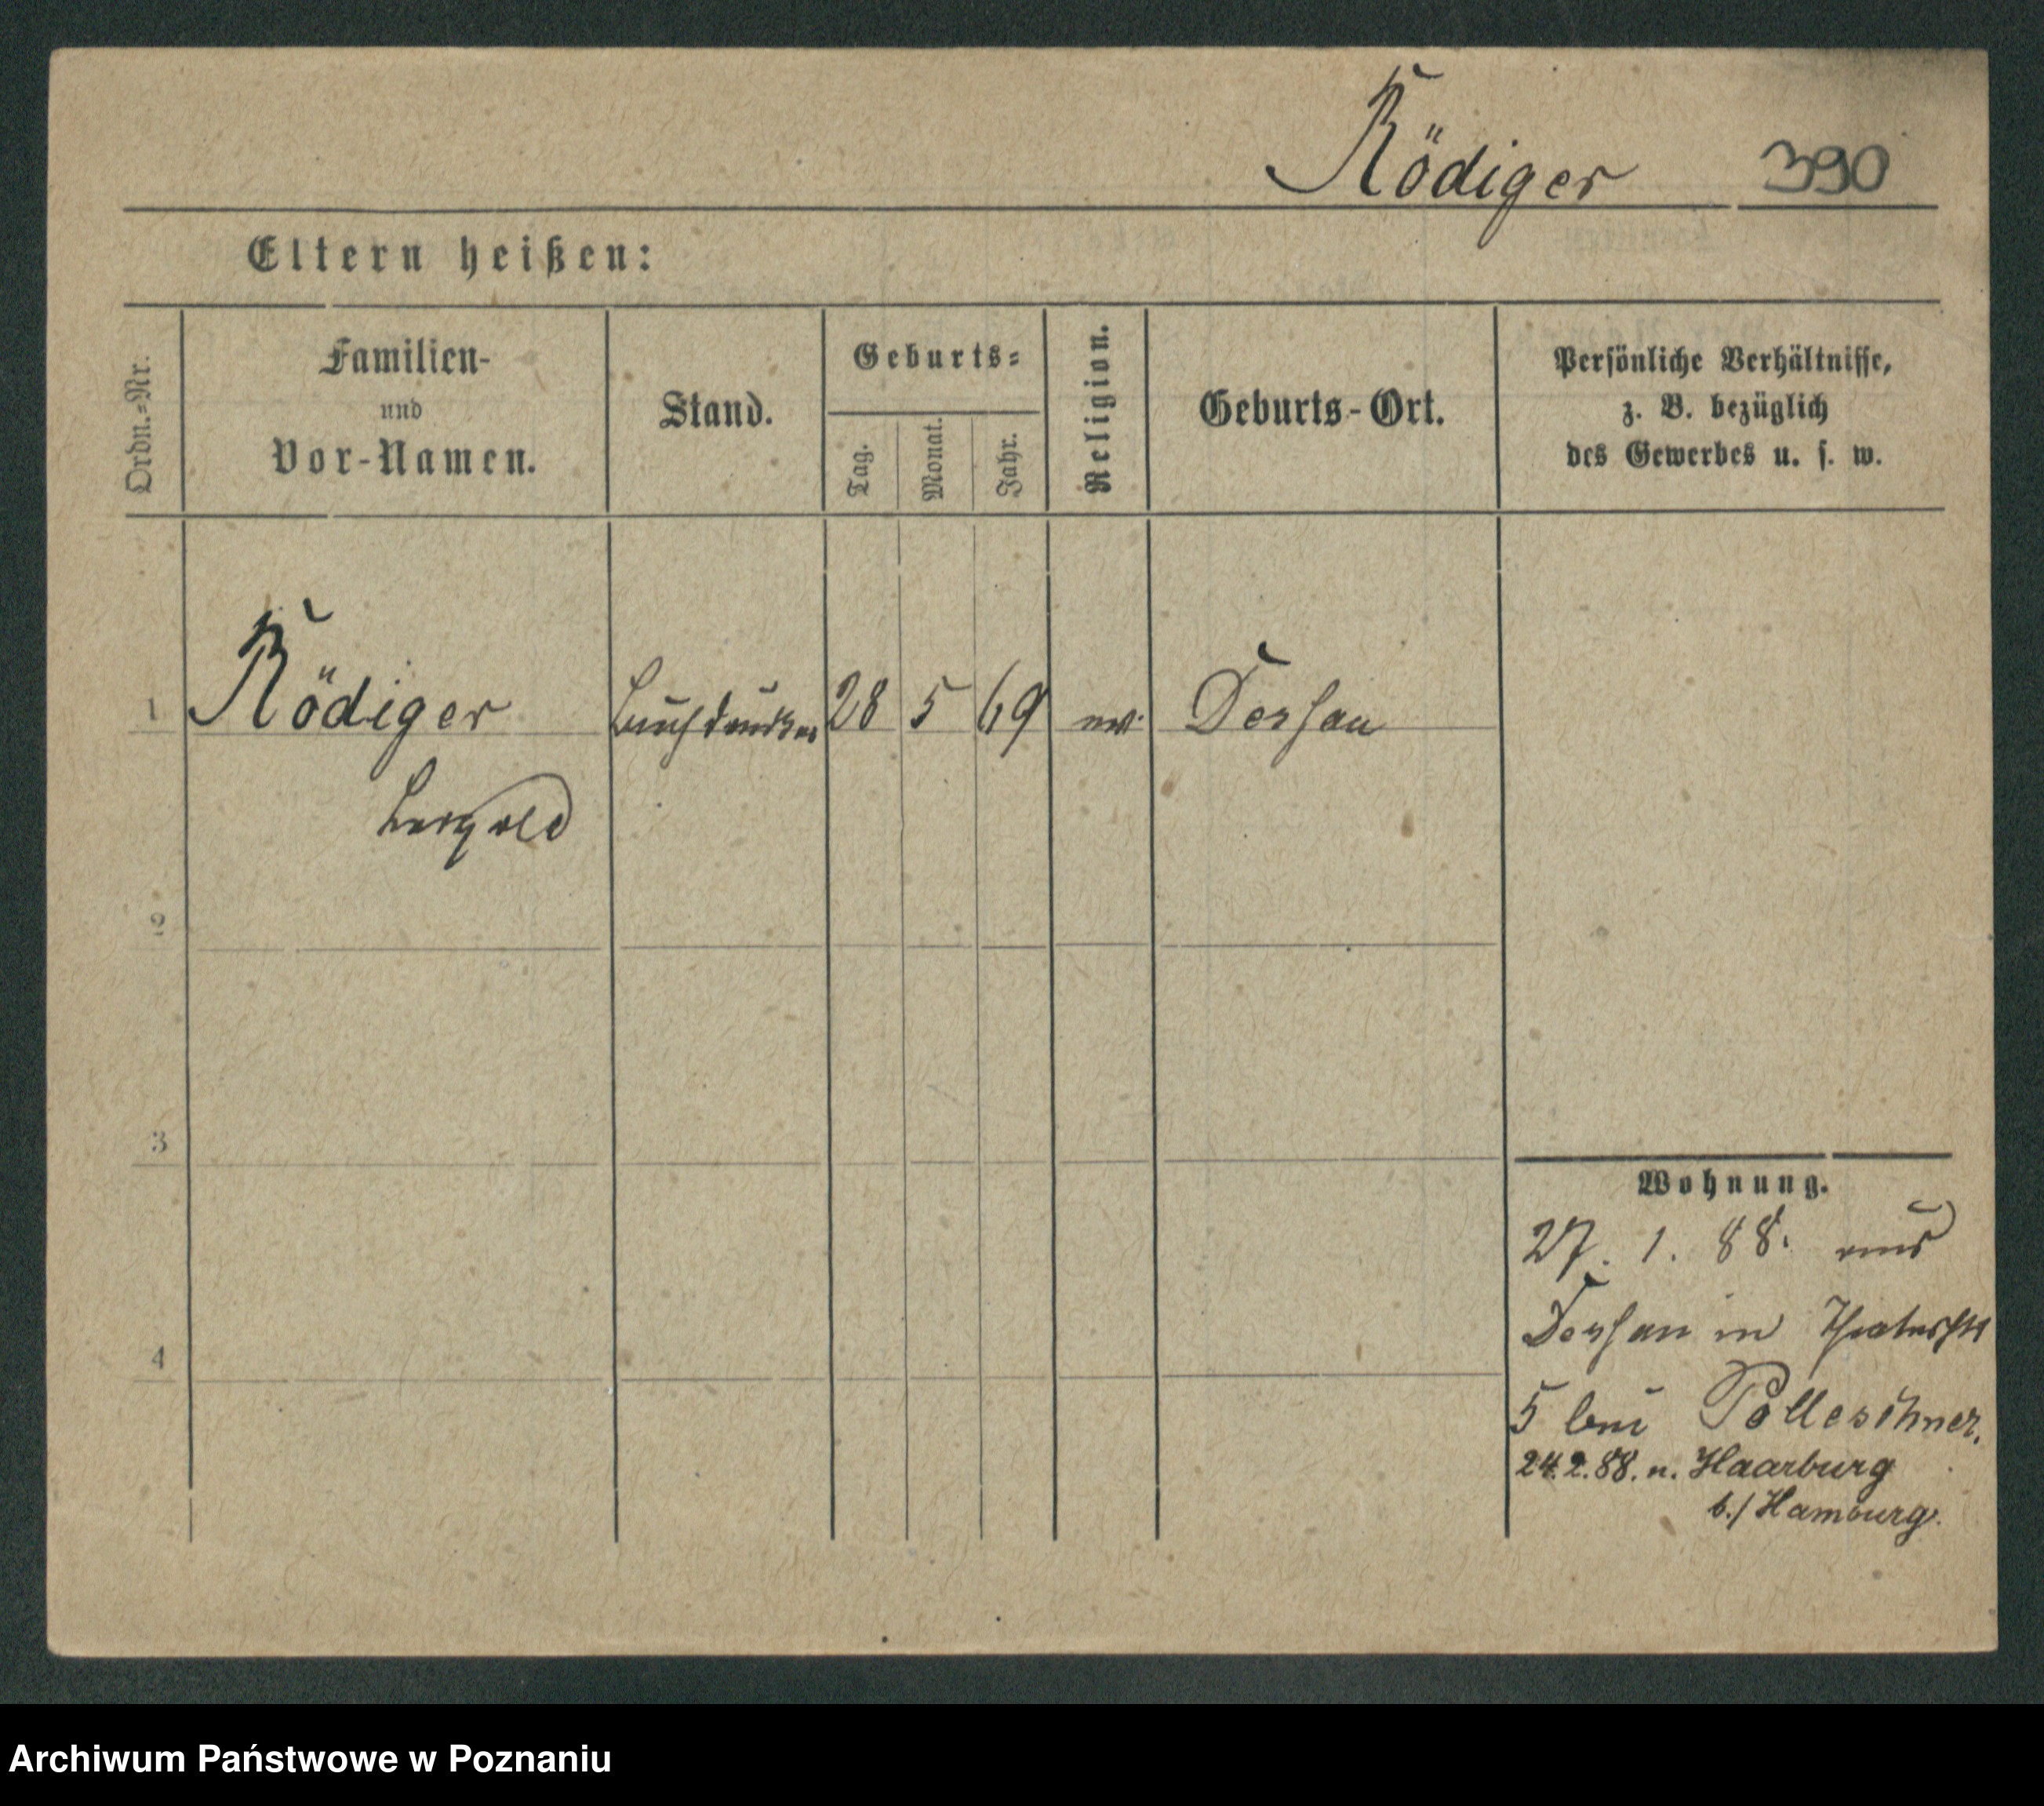 Rödiger 390
Eltern heißen:
Ordn.-Nr.
Familien-
und
Vor-Namen.
Stand.
Geburts-
Tag.
Monat.
Jahr.
Religion.
Geburts-Ort.
Persönliche Verhältnisse,
z. B. bezüglich
des Gewerbes u. s. w.
1 Rödiger Buchdrucker 28 5 69 ev. Dessau
Leopold
2
3
4
Wohnung.
27. 1. 88. aus
Dessau in Theaterstr
5 bei Polleschner.
24.2.88. n. Haarburg
b./Hamburg.
Archiwum Państwowe w Poznaniu